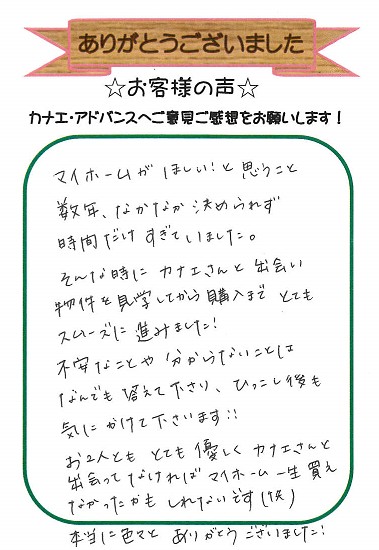 ありがとうございました
☆お客様の声☆
カナエ・アドバンスへご意見ご感想をお願いします！
マイホームが ほしい！と 思うこと
数年、なかなか 決められず
時間だけ すぎていました。
そんな時に カナエさんと 出会い
物件を見学してから 購入まで とても
スムーズに 進みました！
不安なことや 分からないことは
なんでも 答えて下さり、ひっこし後も
気にかけて下さいます!!
お2人とも とても 優しく カナエさんと
出会ってなければ マイホーム 一生 買え
なかったかも しれないです(笑)
本当に色々と ありがとうございました！